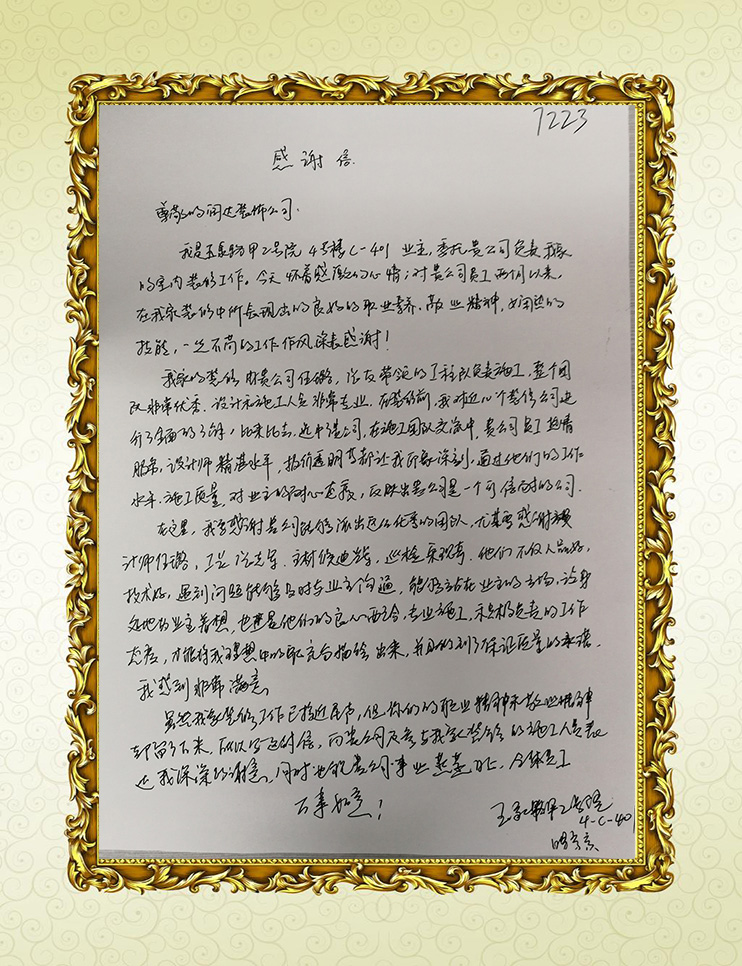 7223
感谢信
尊敬的闼达装饰公司:
我是玉泉路甲2号院4号楼C-401业主,委托贵公司负责我家
的室内装修工作。今天怀着感激的心情,对贵公司员工两个月以来,
在我家装修中所表现出的良好的职业素养、敬业精神,娴熟的
技能,一丝不苟的工作作风深表感谢!
我家的装修,由贵公司任璐,带领的工程队负责施工,整个团
队非常优秀,设计和施工人员非常专业。在装修前,我对近10个装修公司进
行了全面的了解,比来比去,选中贵公司,在施工团队交流中,贵公司员工热情
服务,设计师精湛水平,报价透明等都让我印象深刻,通过他们的工作
水平、施工质量,对业主的耐心态度,反映出贵公司是一个可信的公司。
在这里,我要感谢贵公司能够派出这么优秀的团队,尤其要感谢设
计师任璐,工长,主材,巡检。他们不仅人品好,
技术好,遇到问题能够及时与业主沟通,能够站在业主的立场,设身
处地为业主着想,也正是他们的良心配合,专业施工,积极负责的工作
态度,才能将我理想中的家完台描绘出来,并且做到了保证质量的承诺。
我感到非常满意。
虽然我家装修工作已接近尾声,但你们的职业精神和敬业精神
却留了下来,所以写这封信,向贵公司及参与我家装修的施工人员表
达我深深的谢意。同时也祝贵公司事业蒸蒸日上,全体员工
万事如意!
4-C-401